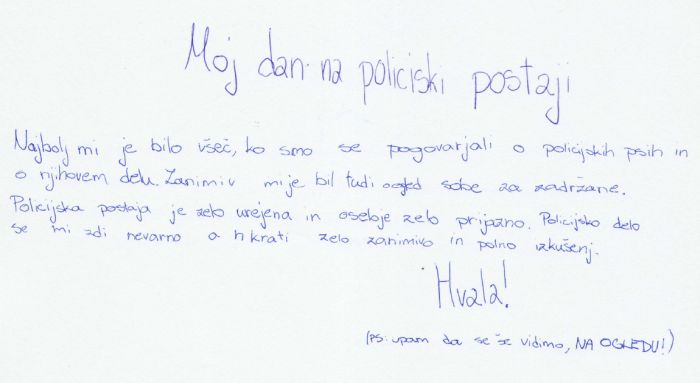 Moj dan na policiski postaji
Najbolj mi je bilo všeč, ko smo se pogovarjali o policijskih psih in
o njihovem delu. Zanimiv mi je bil tudi ogled sobe za zadržane.
Policijska postaja je zelo urejena in osebje zelo prijazno. Policijsko delo
se mi zdi nevarno a hkrati zelo zanimivo in polno izkušenj.
Hvala!
(PS: upam da se še vidimo, NA OGLEDU!)